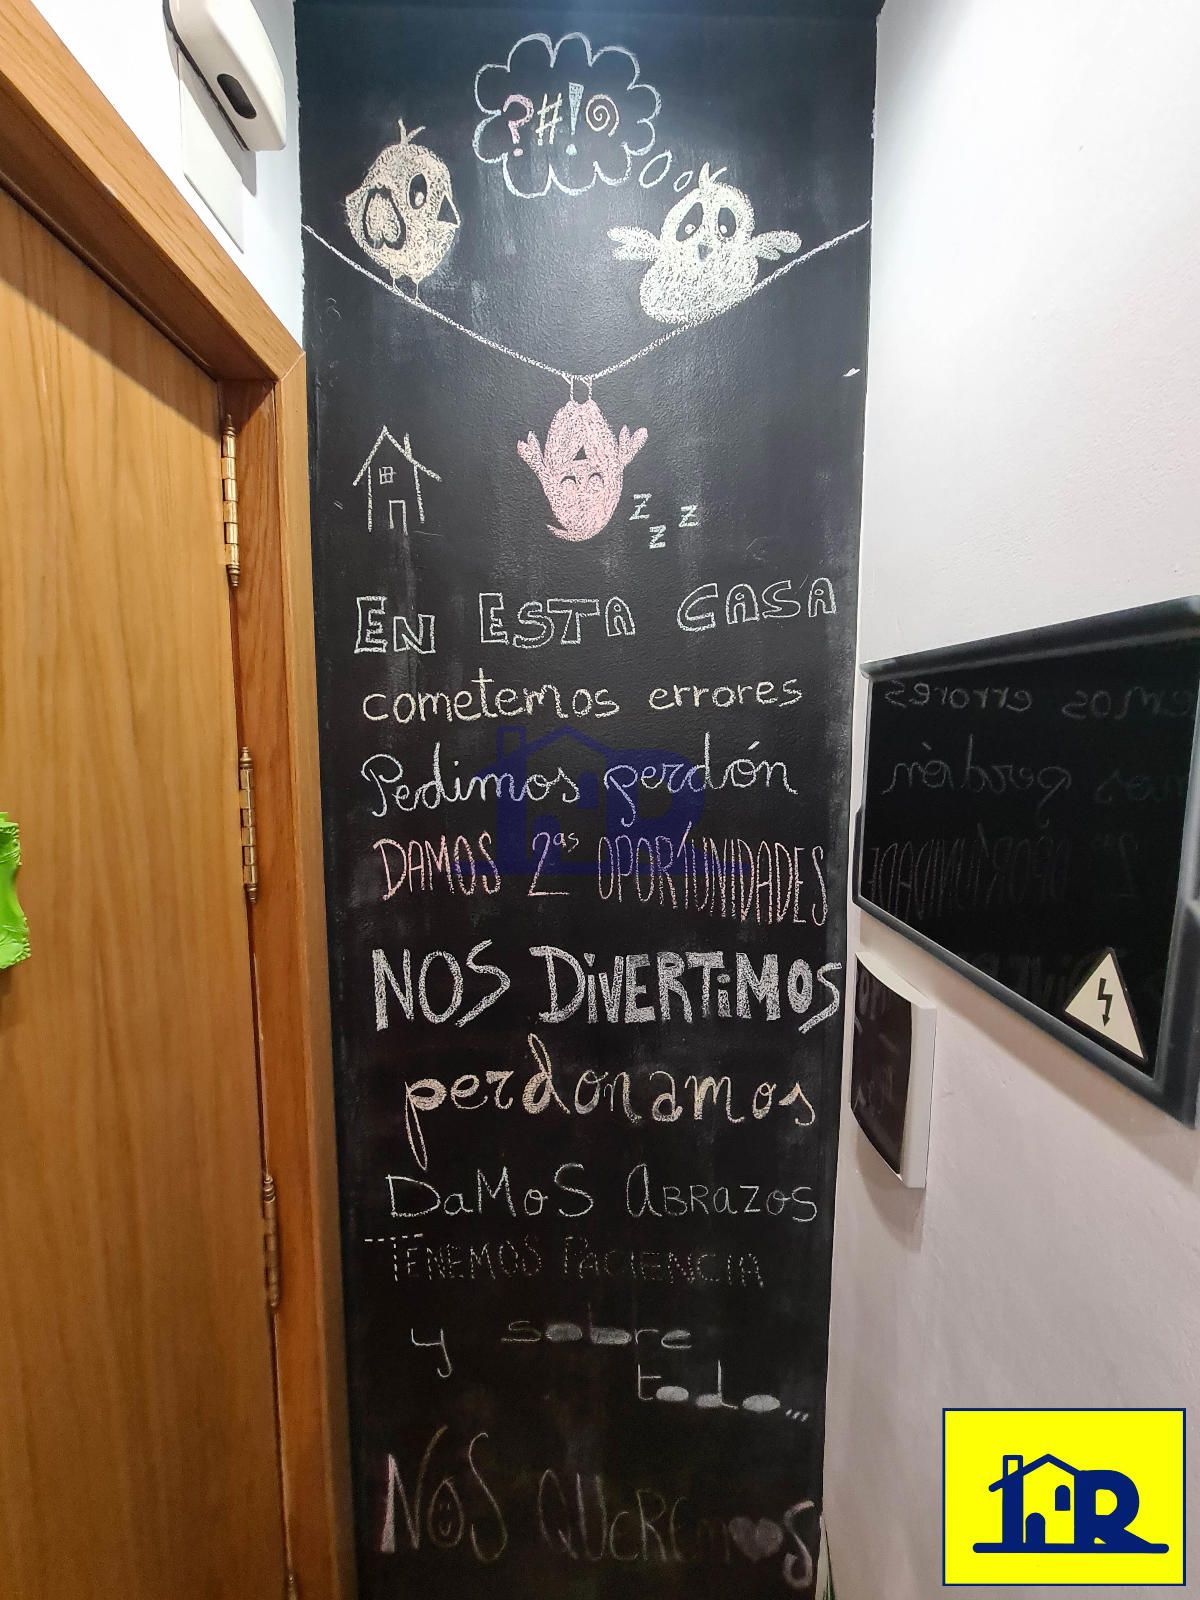 ?#!@
z z z
EN ESTA CASA
cometemos errores
Pedimos perdón
DAMOS 2as OPORTUNIDADES
NOS DiVERTiMOS
perdonamos
DaMoS ABRAZOS
TENEMOS PACIENCIA
y sobre
todo...
NOS QUEREMOS
R